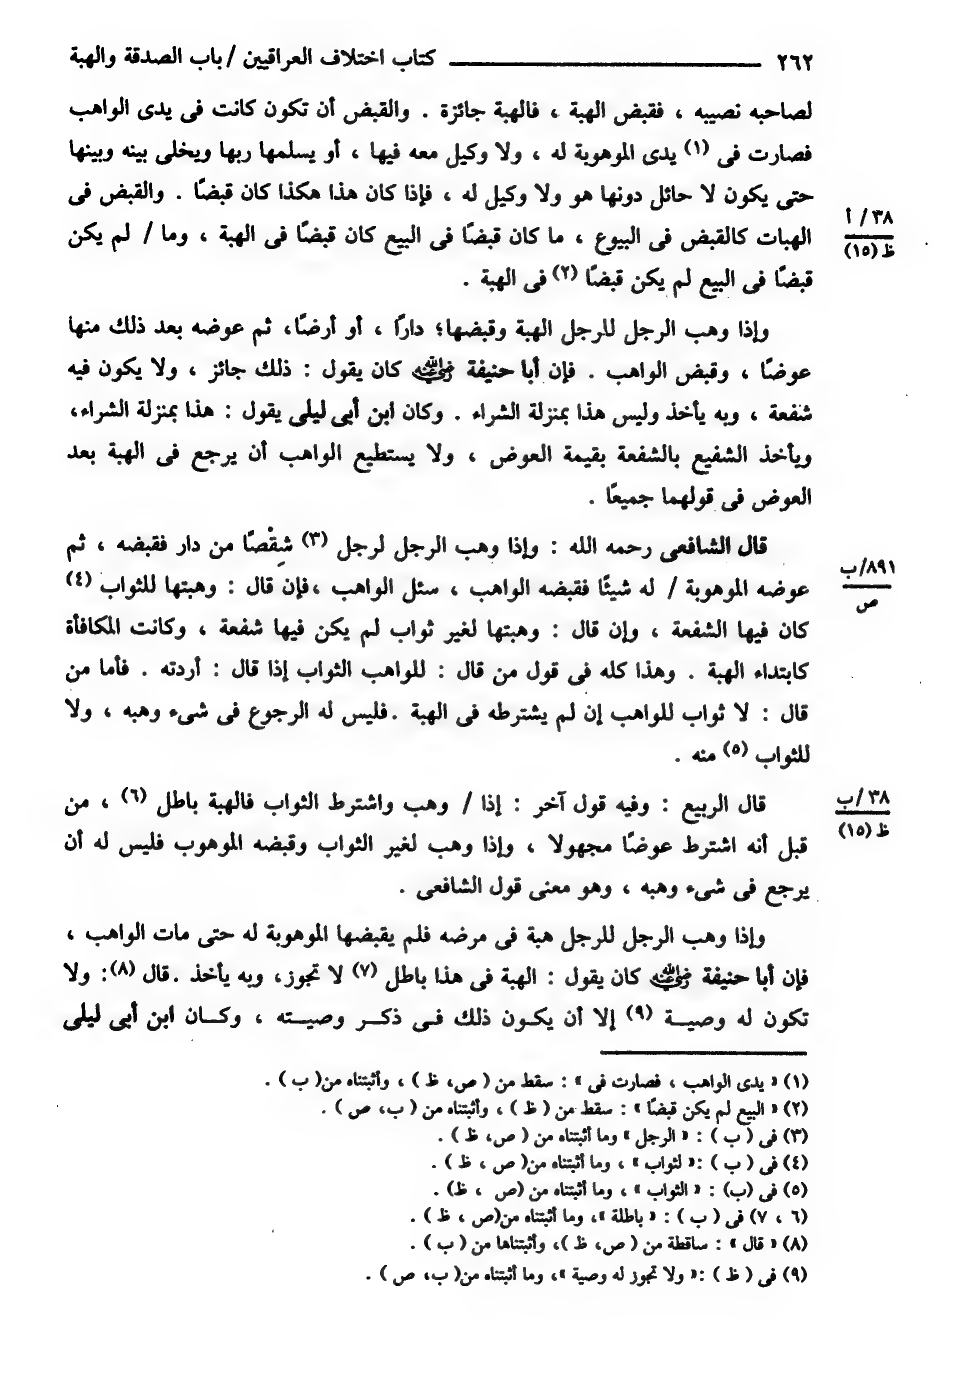 ٢٦٢ ــــــــــــــــ كتاب اختلاف العراقيين / باب الصدقة والهبة
لصاحبه نصيبه ، فقبض الهبة ، فالهبة جائزة . والقبض أن تكون كانت فى يدى الواهب
فصارت فى (١) يدى الموهوبة له ، ولا وكيل معه فيها ، أو يسلمها ربها ويخلى بينه وبينها
حتى يكون لا حائل دونها هو ولا وكيل له ، فإذا كان هذا هكذا كان قبضًا . والقبض فى
٣٨/ أ
الهبات كالقبض فى البيوع ، ما كان قبضًا فى البيع كان قبضًا فى الهبة ، وما / لم يكن
ظ (١٥)
قبضًا فى البيع لم يكن قبضًا (٢) فى الهبة .
وإذا وهب الرجل للرجل الهبة وقبضها؛ دارًا ، أو أرضًا، ثم عوضه بعد ذلك منها
عوضًا ، وقبض الواهب . فإن أبا حنيفة رضي الله عنه كان يقول : ذلك جائز ، ولا يكون فيه
شفعة ، وبه يأخذ وليس هذا بمنزلة الشراء . وكان ابن أبى ليلى يقول : هذا بمنزلة الشراء،
ويأخذ الشفيع بالشفعة بقيمة العوض ، ولا يستطيع الواهب أن يرجع فى الهبة بعد
العوض فى قولهما جميعًا .
قال الشافعى رحمه الله : وإذا وهب الرجل لرجل (٣) شِقْصًا من دار فقبضه ، ثم
٨٩١/ب
عوضه الموهوبة / له شيئًا فقبضه الواهب ، سئل الواهب ،فإن قال : وهبتها للثواب (٤)
ص
كان فيها الشفعة ، وإن قال : وهبتها لغير ثواب لم يكن فيها شفعة ، وكانت المكافأة
كابتداء الهبة . وهذا كله فى قول من قال : للواهب الثواب إذا قال : أردته . فأما من
قال : لا ثواب للواهب إن لم يشترطه فى الهبة .فليس له الرجوع فى شىء وهبه ، ولا
للثواب (٥) منه .
٣٨/ب
قال الربيع : وفيه قول آخر : إذا / وهب واشترط الثواب فالهبة باطل (٦) ، من
ظ (١٥)
قبل أنه اشترط عوضًا مجهولا ، وإذا وهب لغير الثواب وقبضه الموهوب فليس له أن
يرجع فى شىء وهبه ، وهو معنى قول الشافعى .
وإذا وهب الرجل للرجل هبة فى مرضه فلم يقبضها الموهوبة له حتى مات الواهب ،
فإن أبا حنيفة رضي الله عنه كان يقول : الهبة فى هذا باطل (٧) لا تجوز، وبه يأخذ .قال (٨): ولا
تكون له وصيـــة (٩) إلا أن يكـون ذلك فـى ذكـر وصيـــته ، وكـــان ابن أبى ليلى
(١) « يدى الواهب ، فصارت فى » : سقط من ( ص، ظ ) ، وأثبتناه من( ب ) .
(٢) « البيع لم يكن قبضًا » : سقط من ( ظ ) ، وأثبتناه من ( ب، ص ) .
(٣) فى ( ب ) : « الرجل » وما أثبتناه من ( ص، ظ ) .
(٤) فى ( ب ) :« لثواب » ، وما أثبتناه من( ص ، ظ ) .
(٥) فى (ب) : « الثواب » ، وما أثبتناه من (ص ، ظ) .
(٦ ، ٧) فى ( ب ) : « باطلة »، وما أثبتناه من(ص ، ظ ) .
(٨) « قال » : ساقطة من ( ص، ظ )، وأثبتناها من ( ب ) .
(٩) فى ( ظ ) :« ولا تجوز له وصية »، وما أثبتناه من( ب، ص ) .